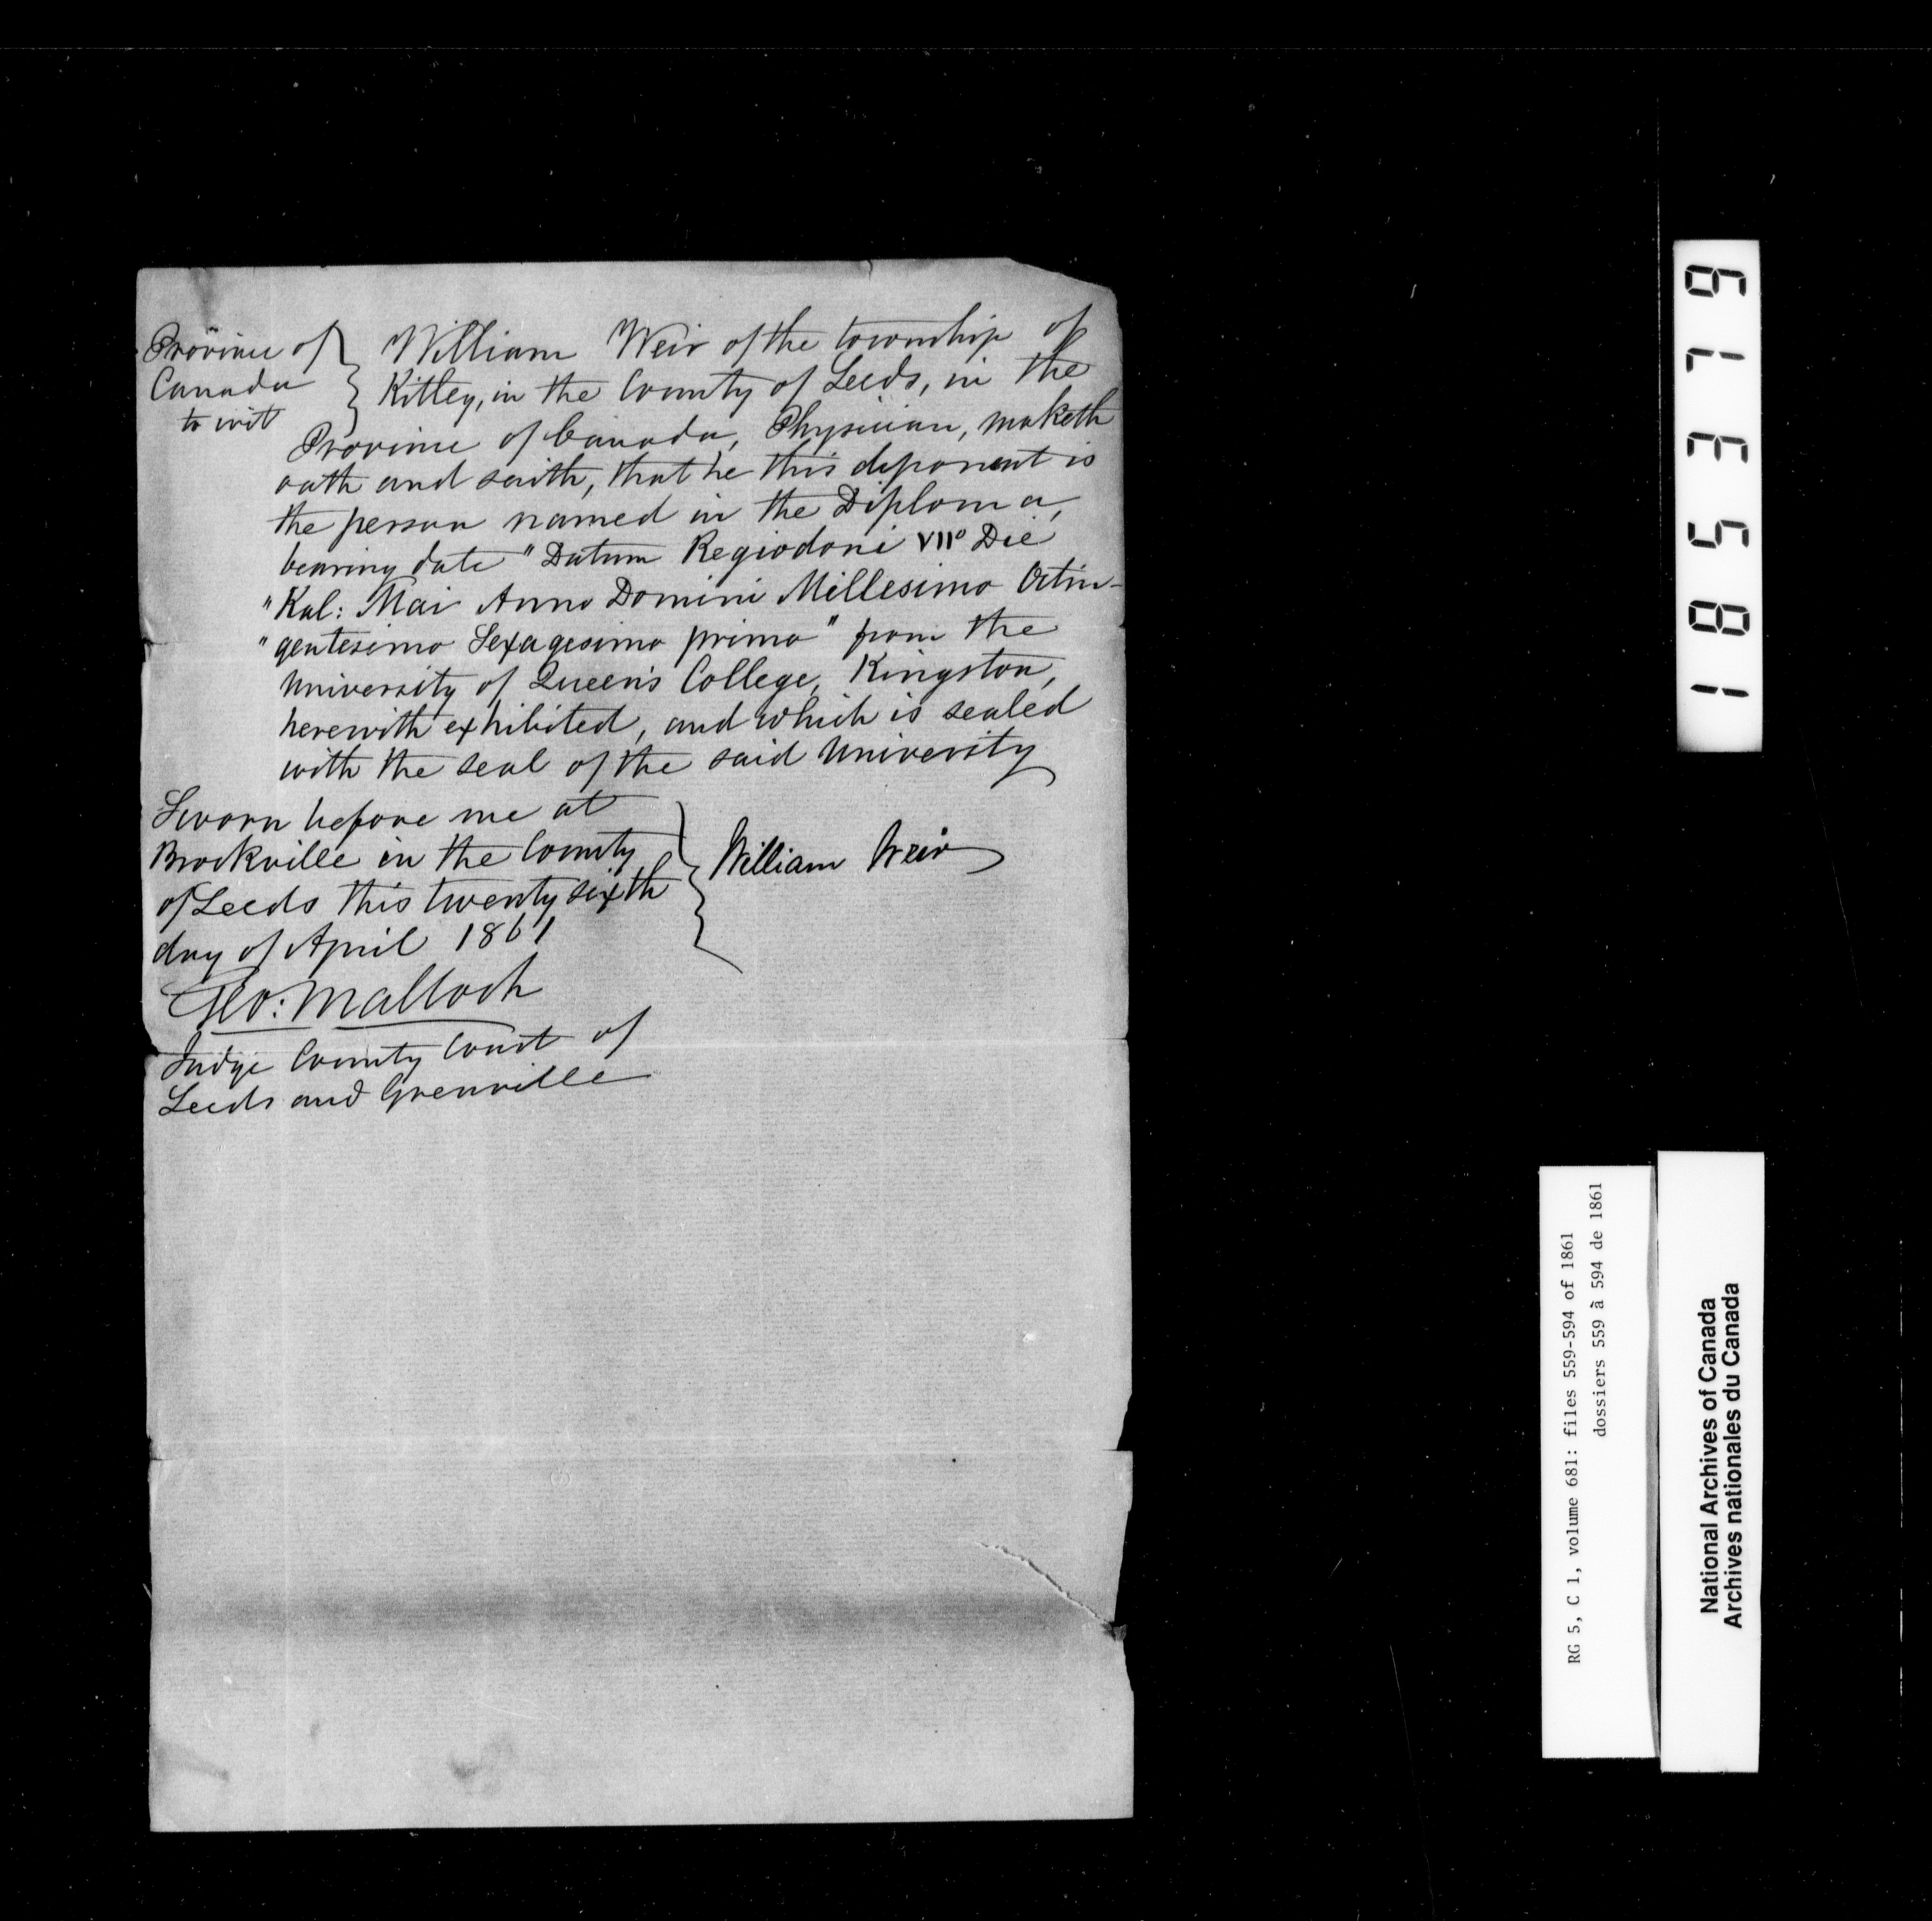 Province of } William Weir of the township of
Canada } Kitley, in the County of Leeds, in the
to wit
Province of Canada, Physician, maketh
oath and saith, that he this deponent is
the person named in the Diploma,
bearing date "Datum Regiodoni VIIº Die
"Kal: Mai Anno Domini Millesimo Octin-
"gentesimo Sexagesimo primo" from the
University of Queen's College, Kingston,
herewith exhibited, and which is sealed
with the seal of the said University
Sworn before me at
Brockville in the County
of Leeds this twenty sixth
day of April 1861
William Weir
Geo: Malloch
Judge County Court of
Leeds and Grenville
185379
RG 5, C 1, volume 681: files 559-594 of 1861
dossiers 559 à 594 de 1861
National Archives of Canada
Archives nationales du Canada